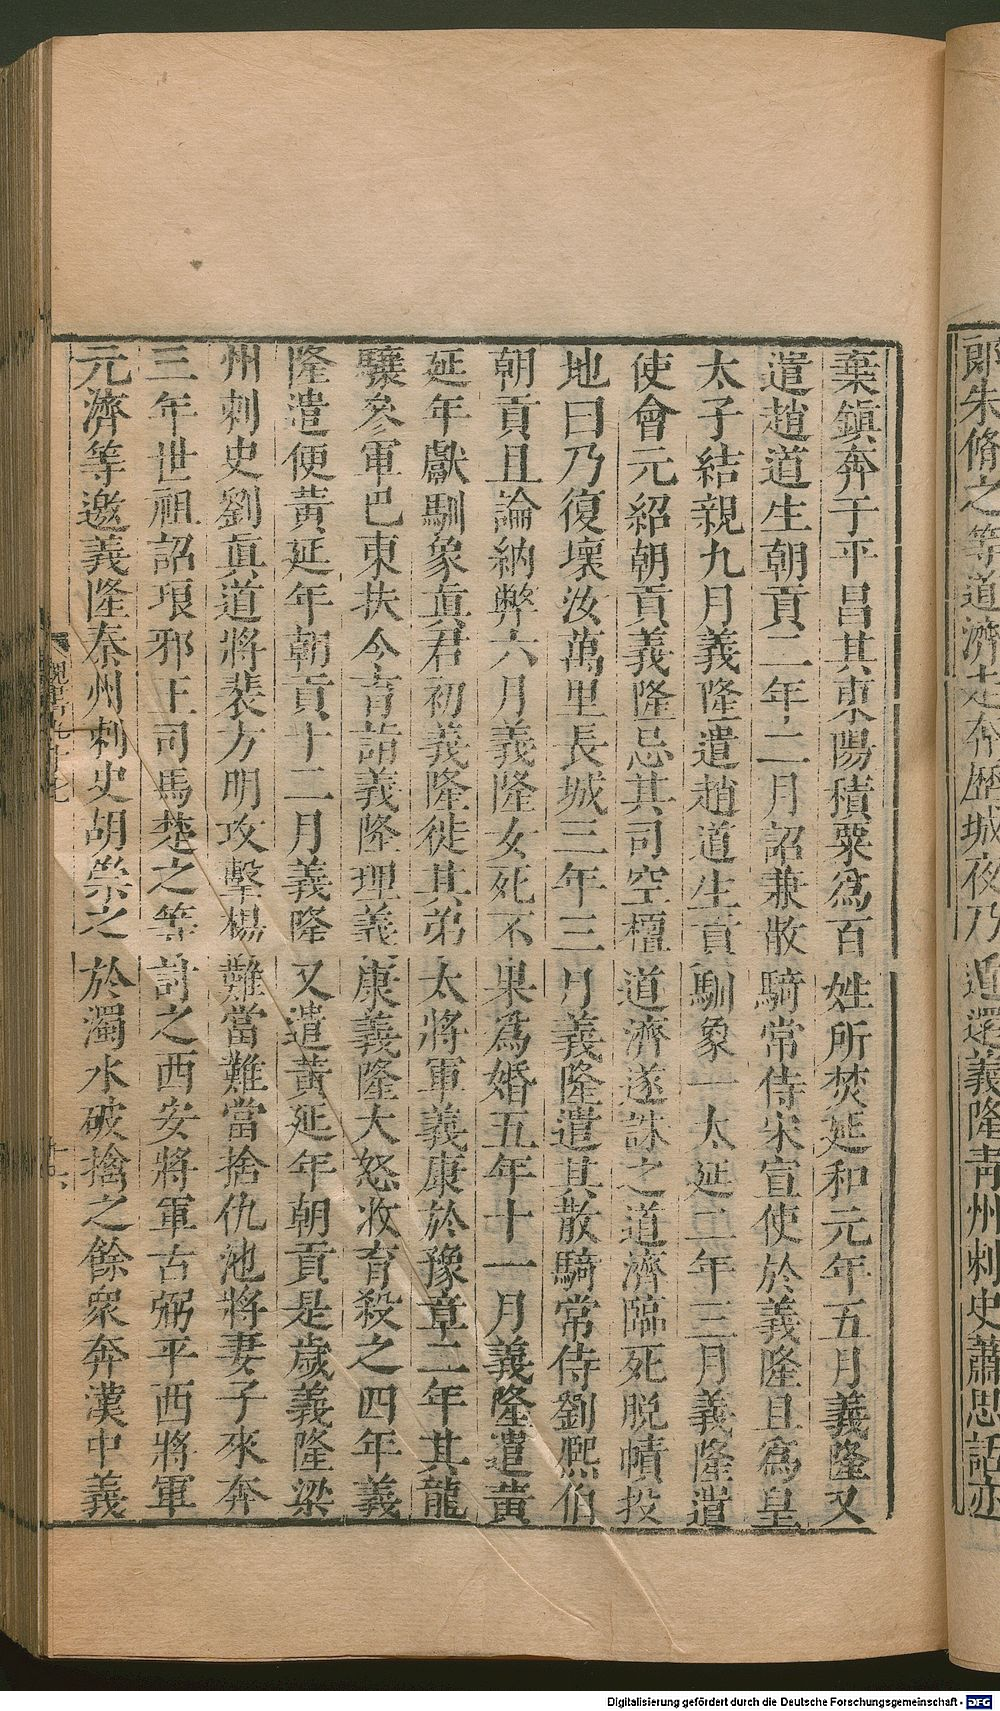 郎朱脩之等道濟走奔歷城夜乃遁還義隆青州刺史蕭思話亦
棄鎮奔于平昌其東陽積粟爲百姓所焚延和元年五月義隆又
遣趙道生朝貢二年二月詔兼散騎常侍宋宣使於義隆且爲皇
太子結親九月義隆遣趙道生貢馴象一太延二年三月義隆遣
使會元紹朝貢義隆忌其司空檀道濟遂誅之道濟臨死脫幘投
地曰乃復壞汝萬里長城三年三月義隆遣其散騎常侍劉熙伯
朝貢且論納弊六月義隆女死不果爲婚五年十一月義隆遣黃
延年獻馴象眞君初義隆徙其弟太將軍義康於豫章二年其龍
驤參軍巴東扶令育詣義隆理義康義隆大怒收育殺之四年義
隆遣便黃延年朝貢十二月義隆又遣黃延年朝貢是歲義隆梁
州刺史劉眞道將裴方明攻擊楊難當難當捨仇池將妻子來奔
三年世祖詔琅邪王司馬楚之等討之西安將軍古弼平西將軍
元濟等邀義隆秦州刺史胡崇之於濁水破擒之餘衆奔漢中義
魏書九十七
十六
Digitalisierung gefördert durch die Deutsche Forschungsgemeinschaft - DFG